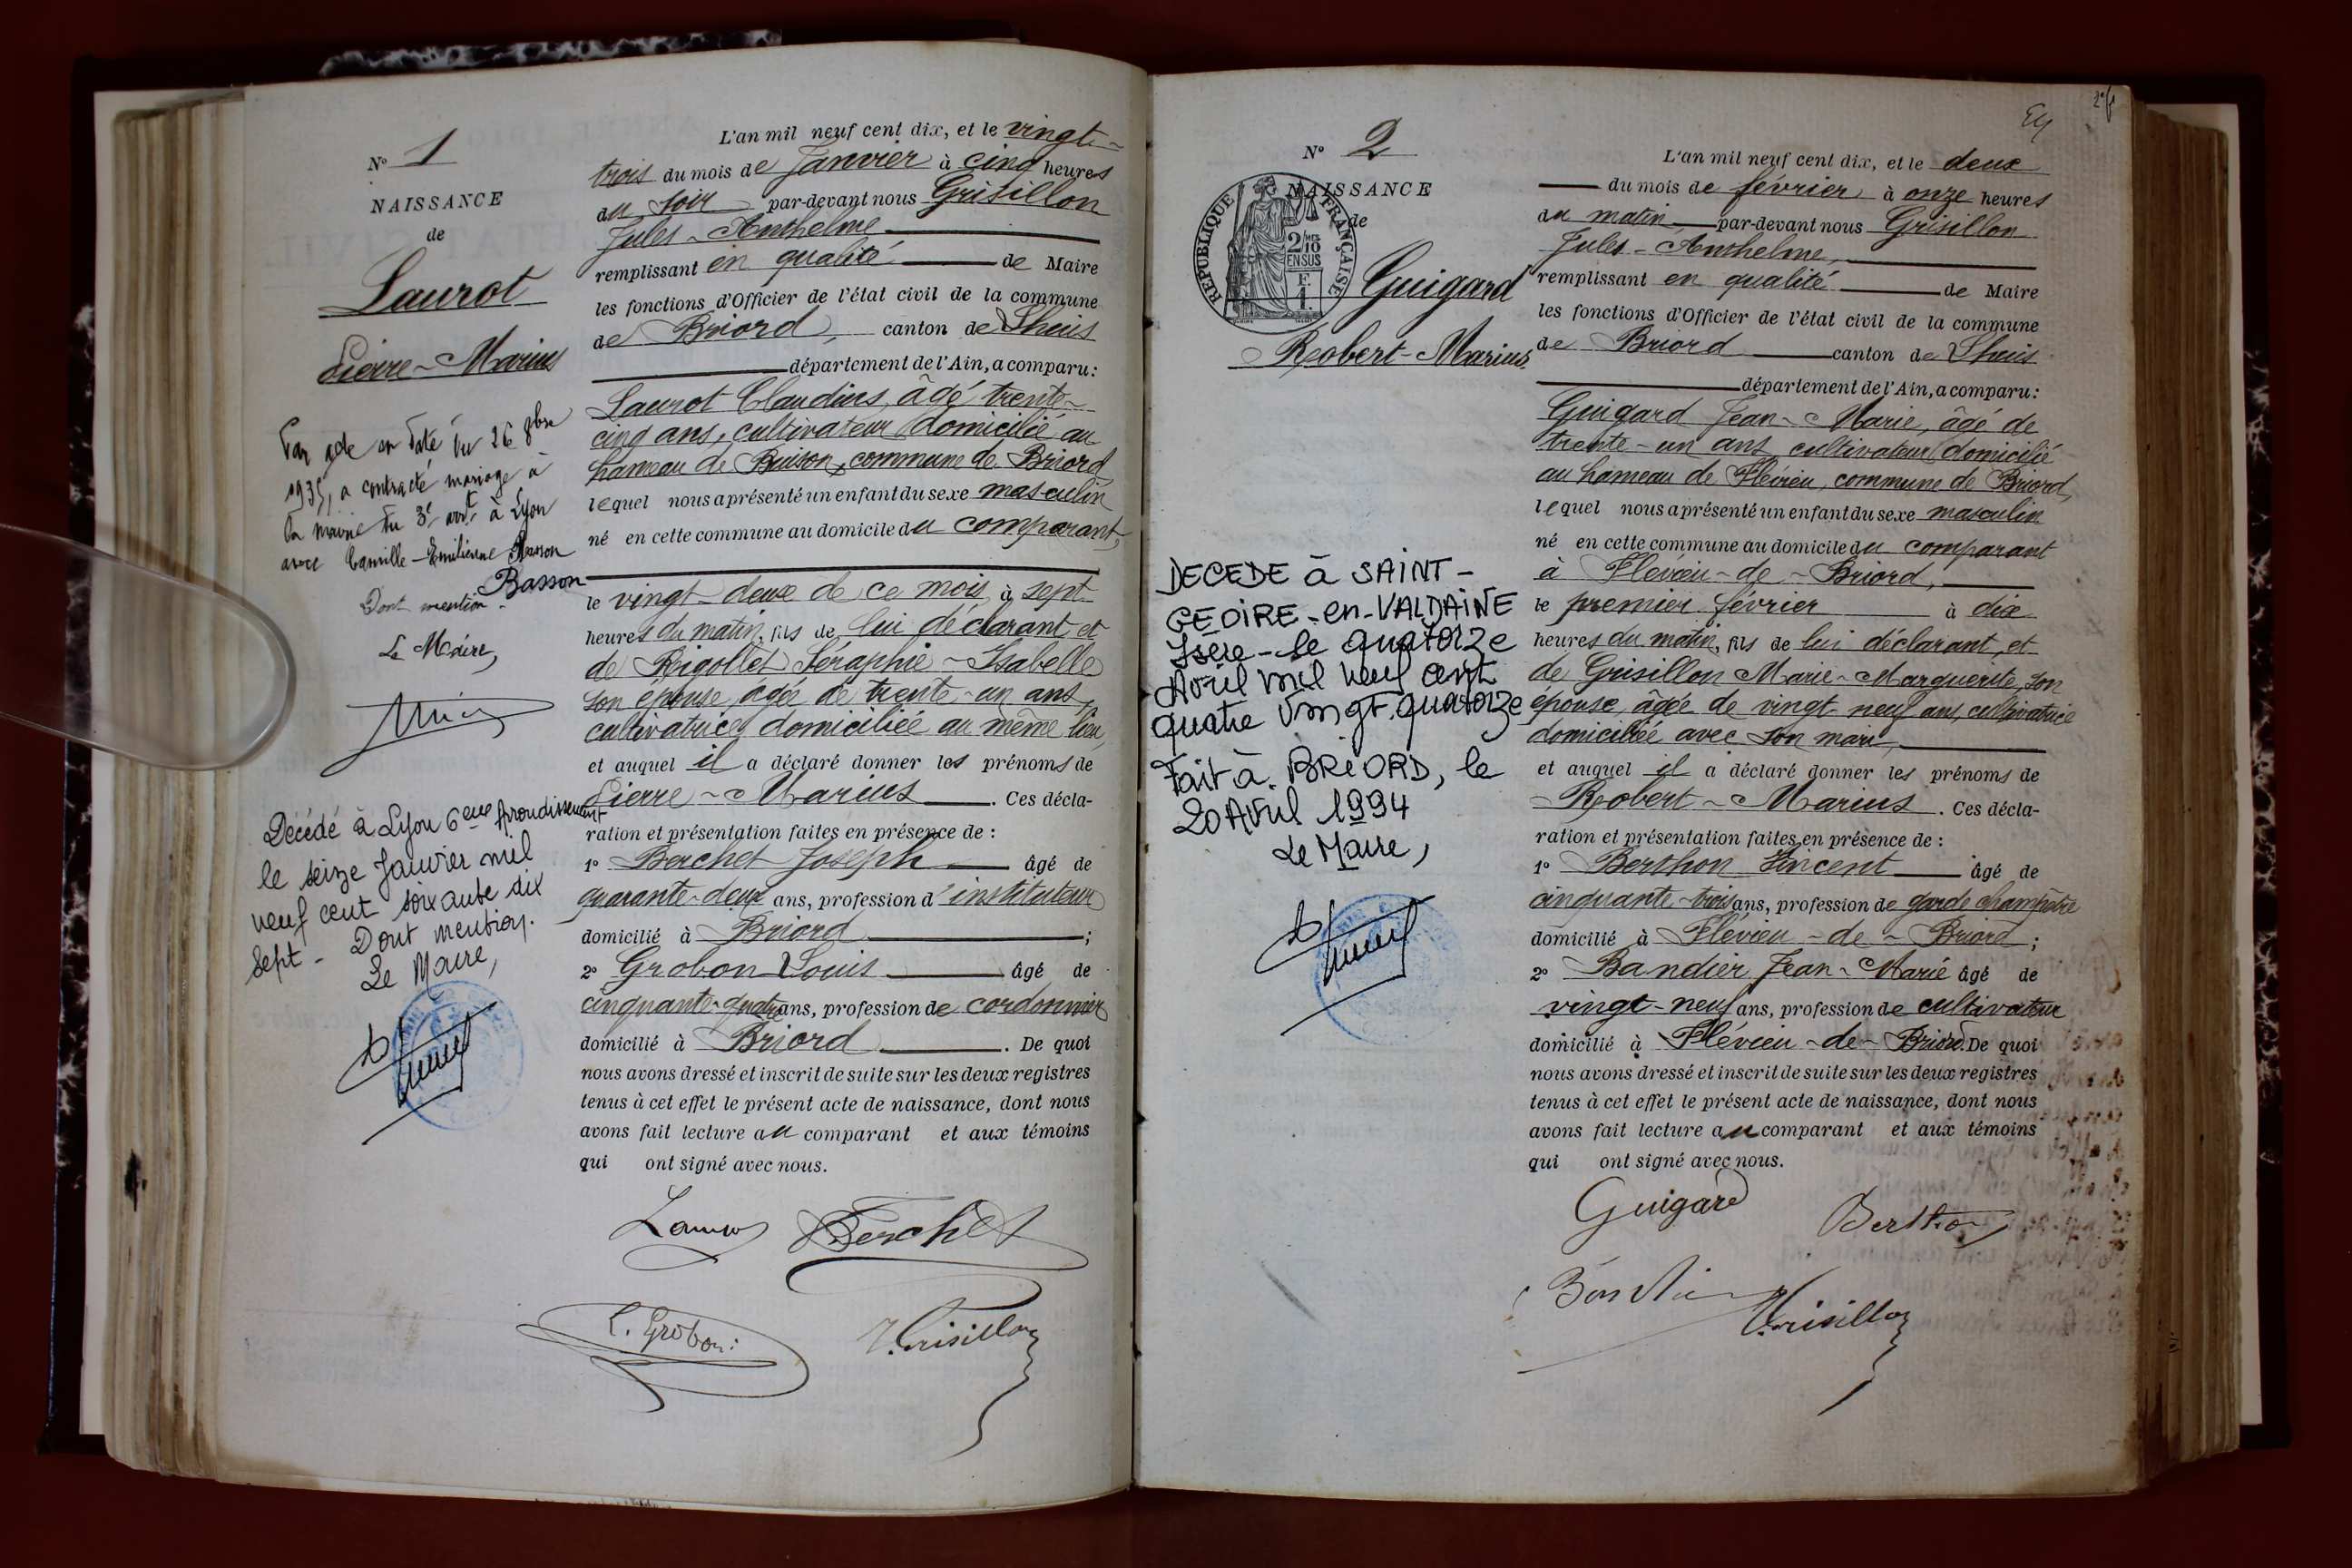 N° 1
NAISSANCE
de
Laurot
Pierre-Marius
Par acte en date du 26 8bre
1935, a contracté mariage à
la mairie du 3e arrt à Lyon
avec Camille-Emilienne
Basson
Dont mention.
Le Maire,
Décédé à Lyon 6eme Arrondissement
le seize Janvier mil
neuf cent soixante dix
sept - Dont mention.
Le Maire,
L'an mil neuf cent dix, et le vingt-
trois du mois de Janvier à cinq heures
du soir par-devant nous Grisillon
Jules-Anthelme
remplissant en qualité de Maire
les fonctions d'Officier de l'état civil de la commune
de Briord, canton de Lhuis
département de l'Ain, a comparu:
Laurot Claudius, âgé trente-
cinq ans, cultivateur domicilié au
hameau de Buison, commune de Briord
lequel nous a présenté un enfant du sexe masculin
né en cette commune au domicile du comparant,
le vingt-deux de ce mois à sept
heures du matin, fils de lui déclarant et
de Rigollet Séraphie-Isabelle
son épouse, âgée de trente-un ans,
cultivatrice domiciliée au même lieu,
et auquel il a déclaré donner les prénoms de
Pierre-Marius. Ces décla-
ration et présentation faites en présence de :
1° Berchet Joseph âgé de
quarante-deux ans, profession d'instituteur
domicilié à Briord ;
2° Grobon Louis âgé de
cinquante-quatre ans, profession de cordonnier
domicilié à Briord. De quoi
nous avons dressé et inscrit de suite sur les deux registres
tenus à cet effet le présent acte de naissance, dont nous
avons fait lecture au comparant et aux témoins
qui ont signé avec nous.
Laurot Berchet
L. Grobon J. Grisillon
N° 2
NAISSANCE
de
REPUBLIQUE FRANÇAISE
2/10
EN SUS
F.
1.
Guigard
Robert-Marius
DECEDE à SAINT-
GEOIRE-en-VALDAINE
Isère - le quatorze
Avril mil neuf cent
quatre vingt. quatorze
Fait à BRIORD, le
20 Avril 1994
Le Maire,
L'an mil neuf cent dix, et le deux
du mois de février à onze heures
du matin par-devant nous Grisillon
Jules-Anthelme,
remplissant en qualité de Maire
les fonctions d'Officier de l'état civil de la commune
de Briord canton de Lhuis
département de l'Ain, a comparu:
Guigard Jean-Marie, âgé de
trente-un ans cultivateur domicilié
au hameau de Flévieu, commune de Briord,
lequel nous a présenté un enfant du sexe masculin
né en cette commune au domicile du comparant
à Flévieu-de-Briord,
le premier février à dix
heures du matin, fils de lui déclarant, et
de Grisillon Marie-Marguerite, son
épouse, âgée de vingt-neuf ans, cultivatrice
domiciliée avec son mari,
et auquel il a déclaré donner les prénoms de
Robert-Marius. Ces décla-
ration et présentation faites en présence de :
1° Berthon Vincent âgé de
cinquante-trois ans, profession de garde champêtre
domicilié à Flévieu-de-Briord ;
2° Bandier Jean-Marie âgé de
vingt-neuf ans, profession de cultivateur
domicilié à Flévieu-de-Briord. De quoi
nous avons dressé et inscrit de suite sur les deux registres
tenus à cet effet le présent acte de naissance, dont nous
avons fait lecture au comparant et aux témoins
qui ont signé avec nous.
Guigard Berthon
Bandier Grisillon